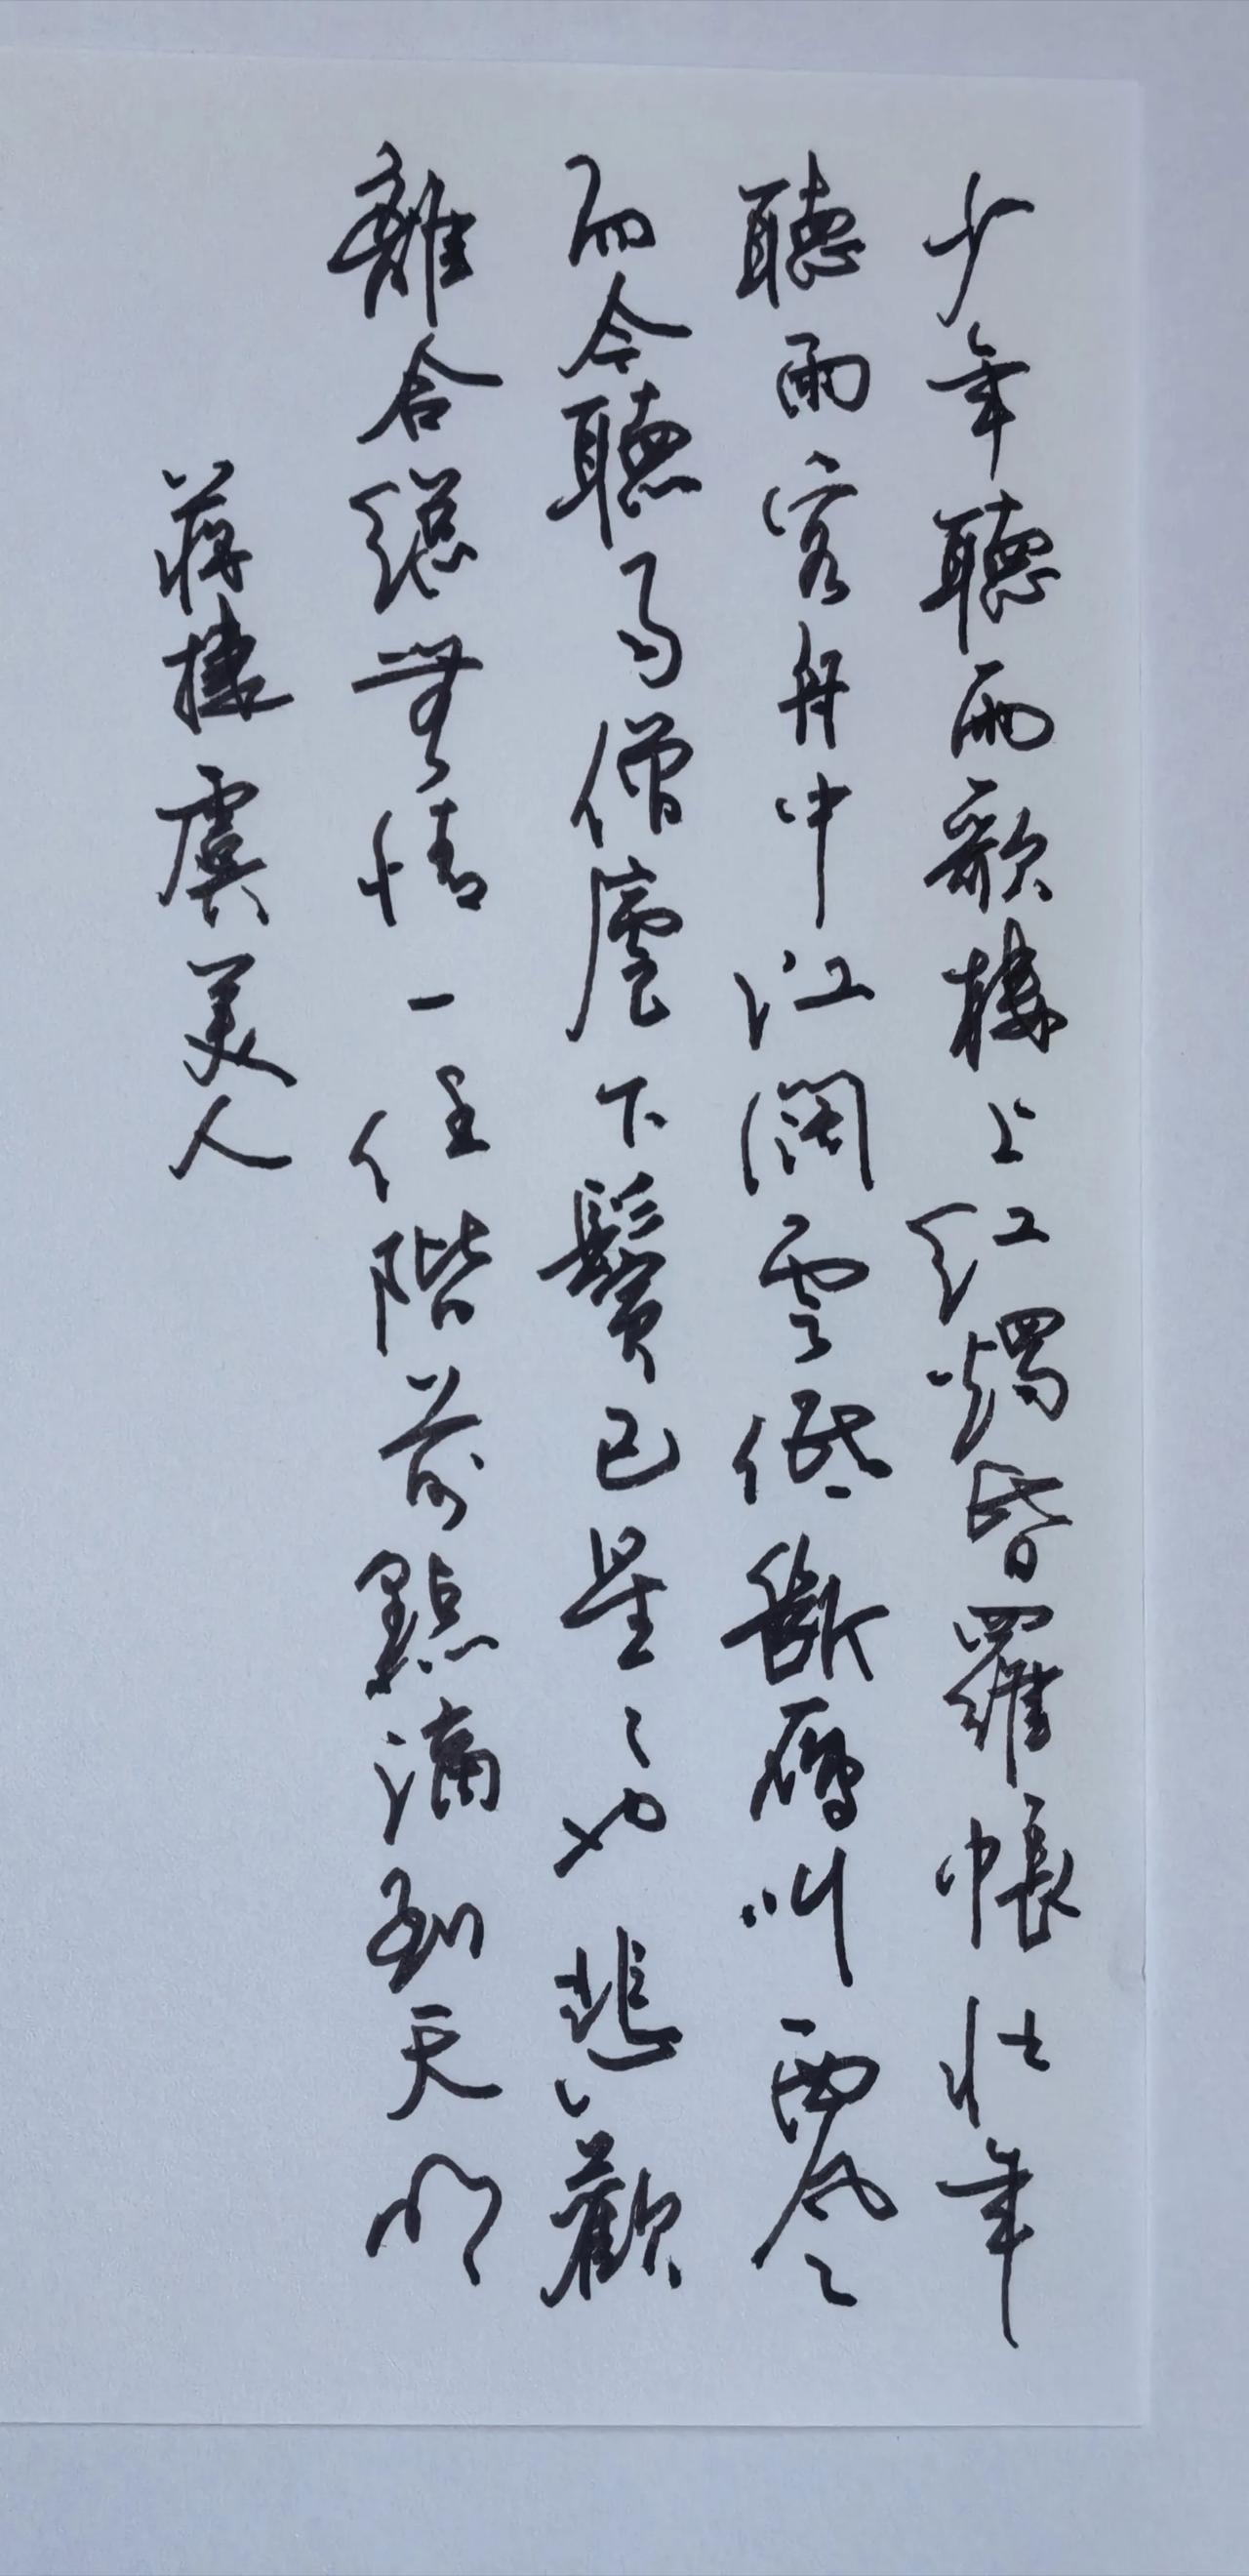 少年聽雨歌樓上紅燭昏羅帳壯年
聽雨客舟中江闊雲低斷雁叫西風
而今聽雨僧廬下鬢已星々也悲歡
離合總無情一任階前點滴到天明
蔣捷虞美人